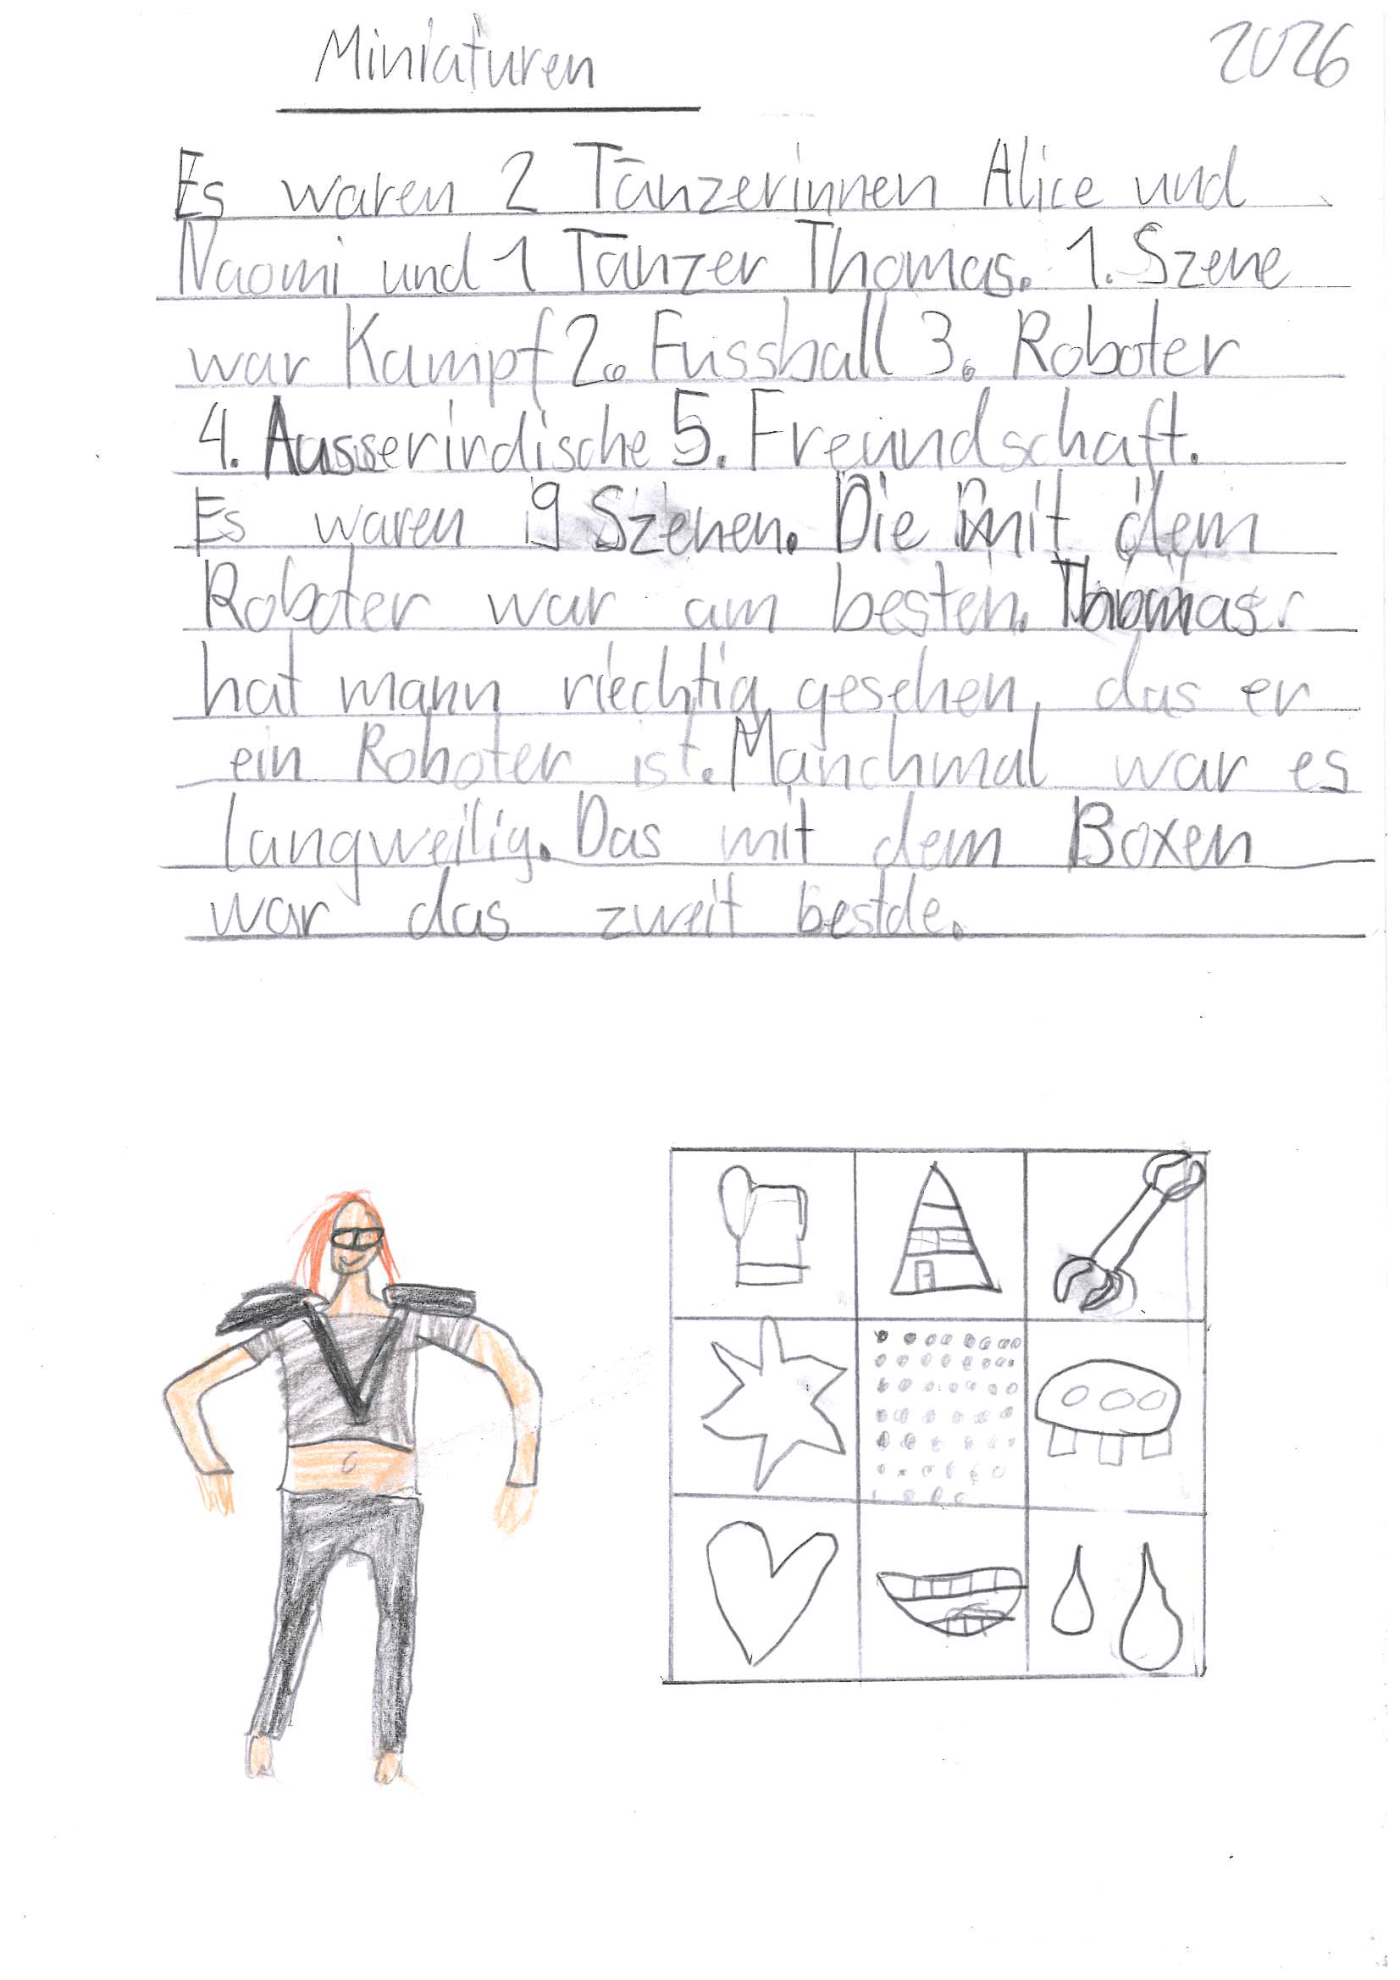 Miniaturen
2026
Es waren 2 Tänzerinnen Alice und
Naomi und 1 Tänzer Thomas. 1. Szene
war Kampf 2. Fussball 3. Roboter
4. Ausserirdische 5. Freundschaft.
Es waren 9 Szenen. Die mit dem
Roboter war am besten. Thomas
hat mann riechtig gesehen, das er
ein Roboter ist. Manchmal war es
langweilig. Das mit dem Boxen
war das zweit bestde.